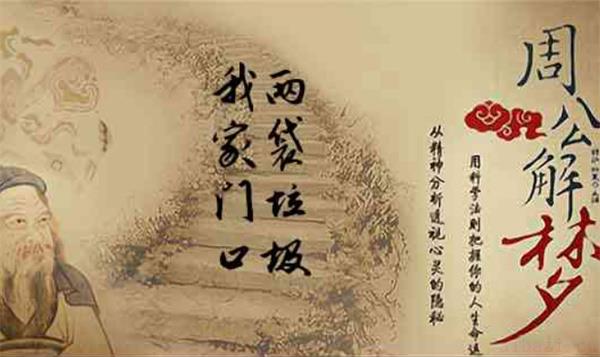 周公解梦
用科学法则把握你的人生命运
从精神分析透视心灵的隐秘
两袋垃圾
我家门口